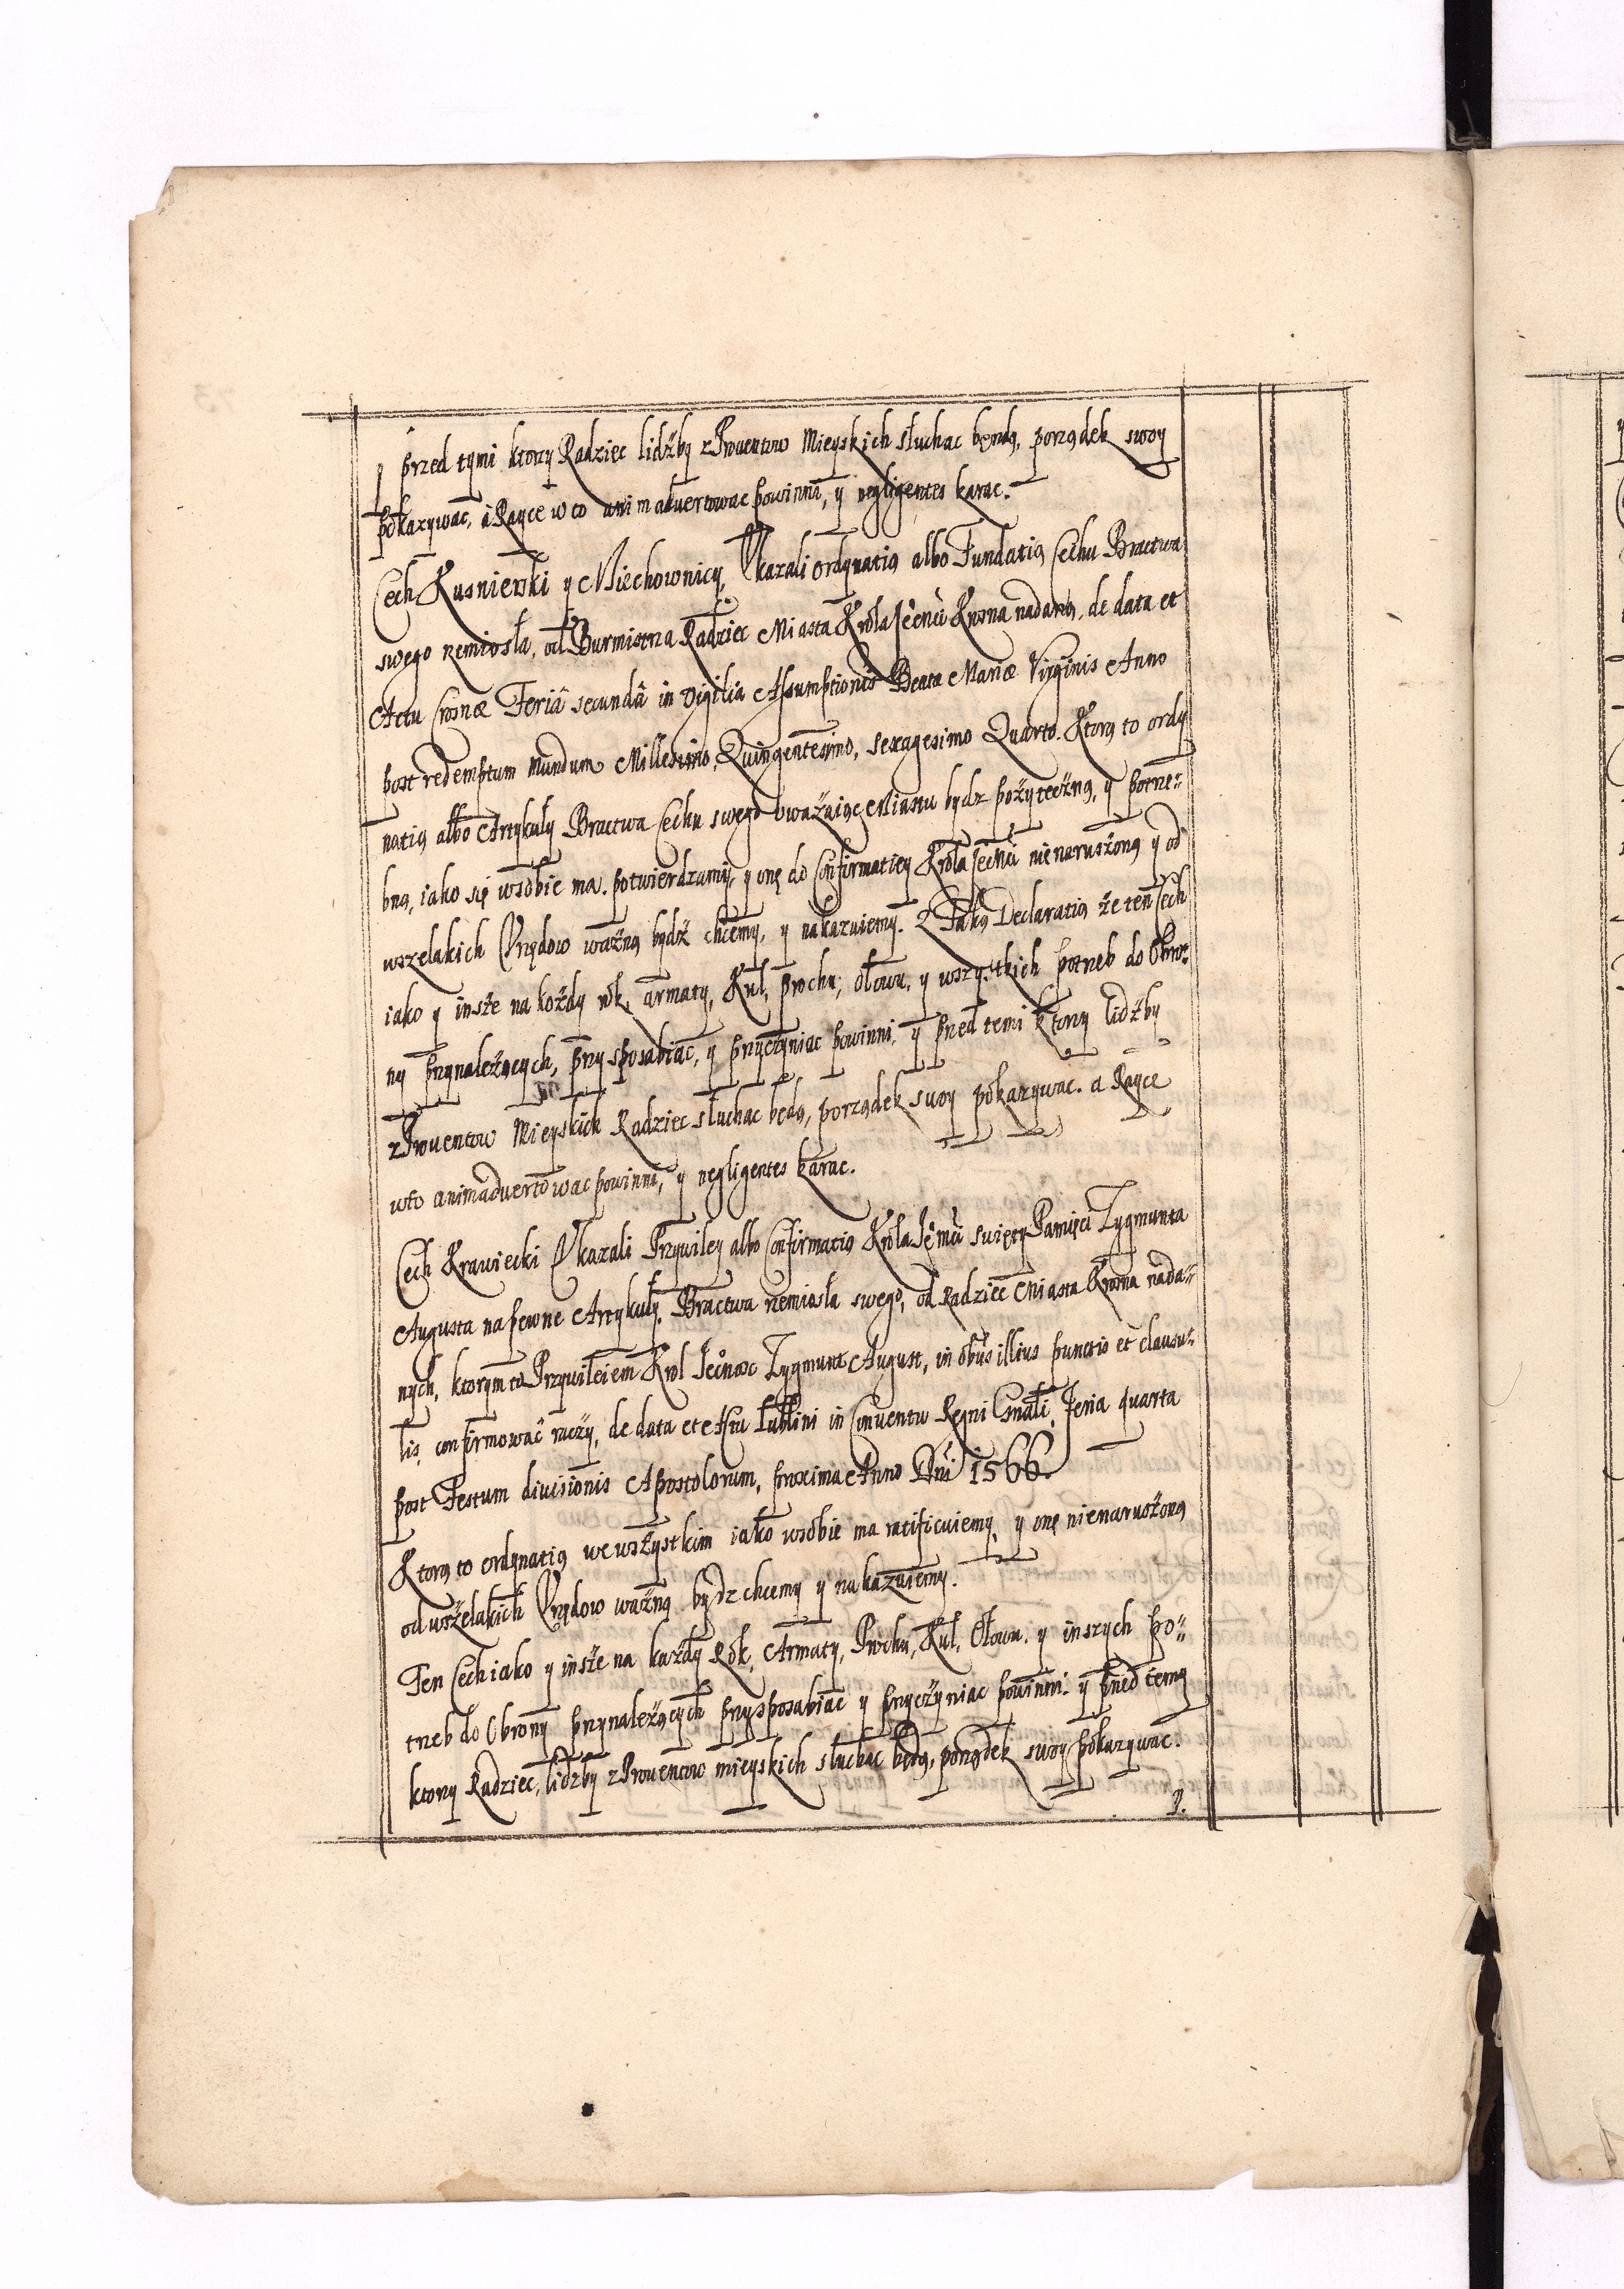 y przed tymi ktorzy Radziec lidźby z Prowentow Mieyskich słuchac będą, porządek swoy
pokazywac, a Rayce w to animadvertowac powinni, y negligentes karac.
Cech Kusnierski y Miechownicy, Ukazali ordynatią albo Fundatią Cechu Bractwa
swego rzemiosła, od Burmistrza Radziec Miasta Krola Jeo Mci Krosna nadaną, de data et
Actu Crosnæ Feriâ secundâ in vigilia Assumptionis Beatæ Mariæ Virginis Anno
post redemptum Mundum Millesimo, Quingentesimo, sexagesimo Quarto. Ktorą to ordy
natią albo Artykuły Bractwa Cechu swego uważaiąc Miastu bydz pożyteczną, y potrze-
bną, iako się w sobie ma. potwierdzamy, y onę do Confirmatiey Krola Jeo Mci nienaruszoną y od
wszelakich Urzędow ważną bydź chcemy, y nakazuiemy. Z Taką Declaratią że ten Cech
iako y insze na kożdy rok, armaty, Kul, prochu, ołowu, y wszystkich potrzeb do Obro-
ny przynależących, przysposabiac, y przyczyniac powinni, y przed temi ktorzy lidźby
z Prowentow Mieyskich Radziec słuchac będą, porządek swoy pokazywac. a Rayce
w to animadvertowac powinni, y negligentes karac.
Cech Krawiecki Ukazali Przywiley albo Confirmatią Krola Jeo Mci swięty Pamięci Zygmunta
Augusta na pewne Artykuły. Bractwa rzemiosła swego, od Radziec Miasta Krosna nada-
nych, ktorym to Przywileiem Krol Jeo Mosc Zygmunt August, in oĩbus illius punctis et clausu-
lis, confirmowac raczy, de data et Actu Lublini in Conventu Regni Gnali, Feria quarta
post Festum divisionis Apostolorum, proxima Anno Dni 1566.
Ktorą to ordynatią we wszystkim iako w sobie ma ratificuiemy, y onę nienaruszoną
od wszelakich Urzędow ważną bydz chcemy y nakazuiemy.
Ten Cech iako y insze na każdy Rok, Armaty, Prochu, Kul, Ołowu. y inszych po-
trzeb do Obrony przynależących przysposabiac y przyczyniac powinni. y przed temy
ktorzy Radziec, lidźby z Prowentow mieyskich słuchac będą, porządek swoy pokazywac.
y.